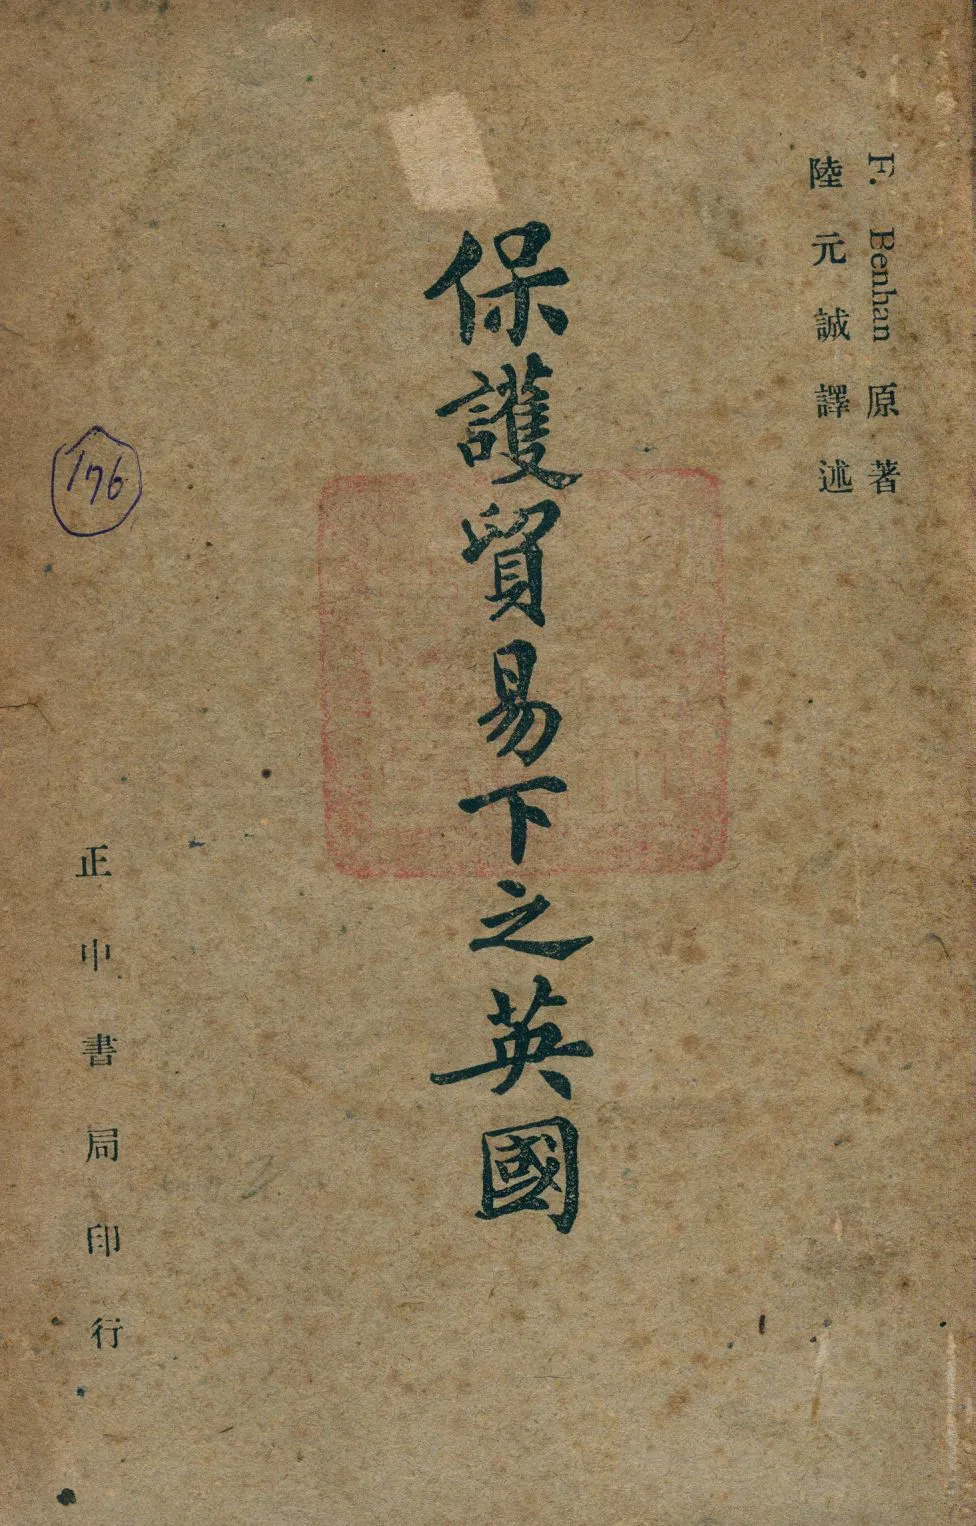 F. Benhan 原著
陸元誠譯述
保護貿易下之英國
正中書局印行
176